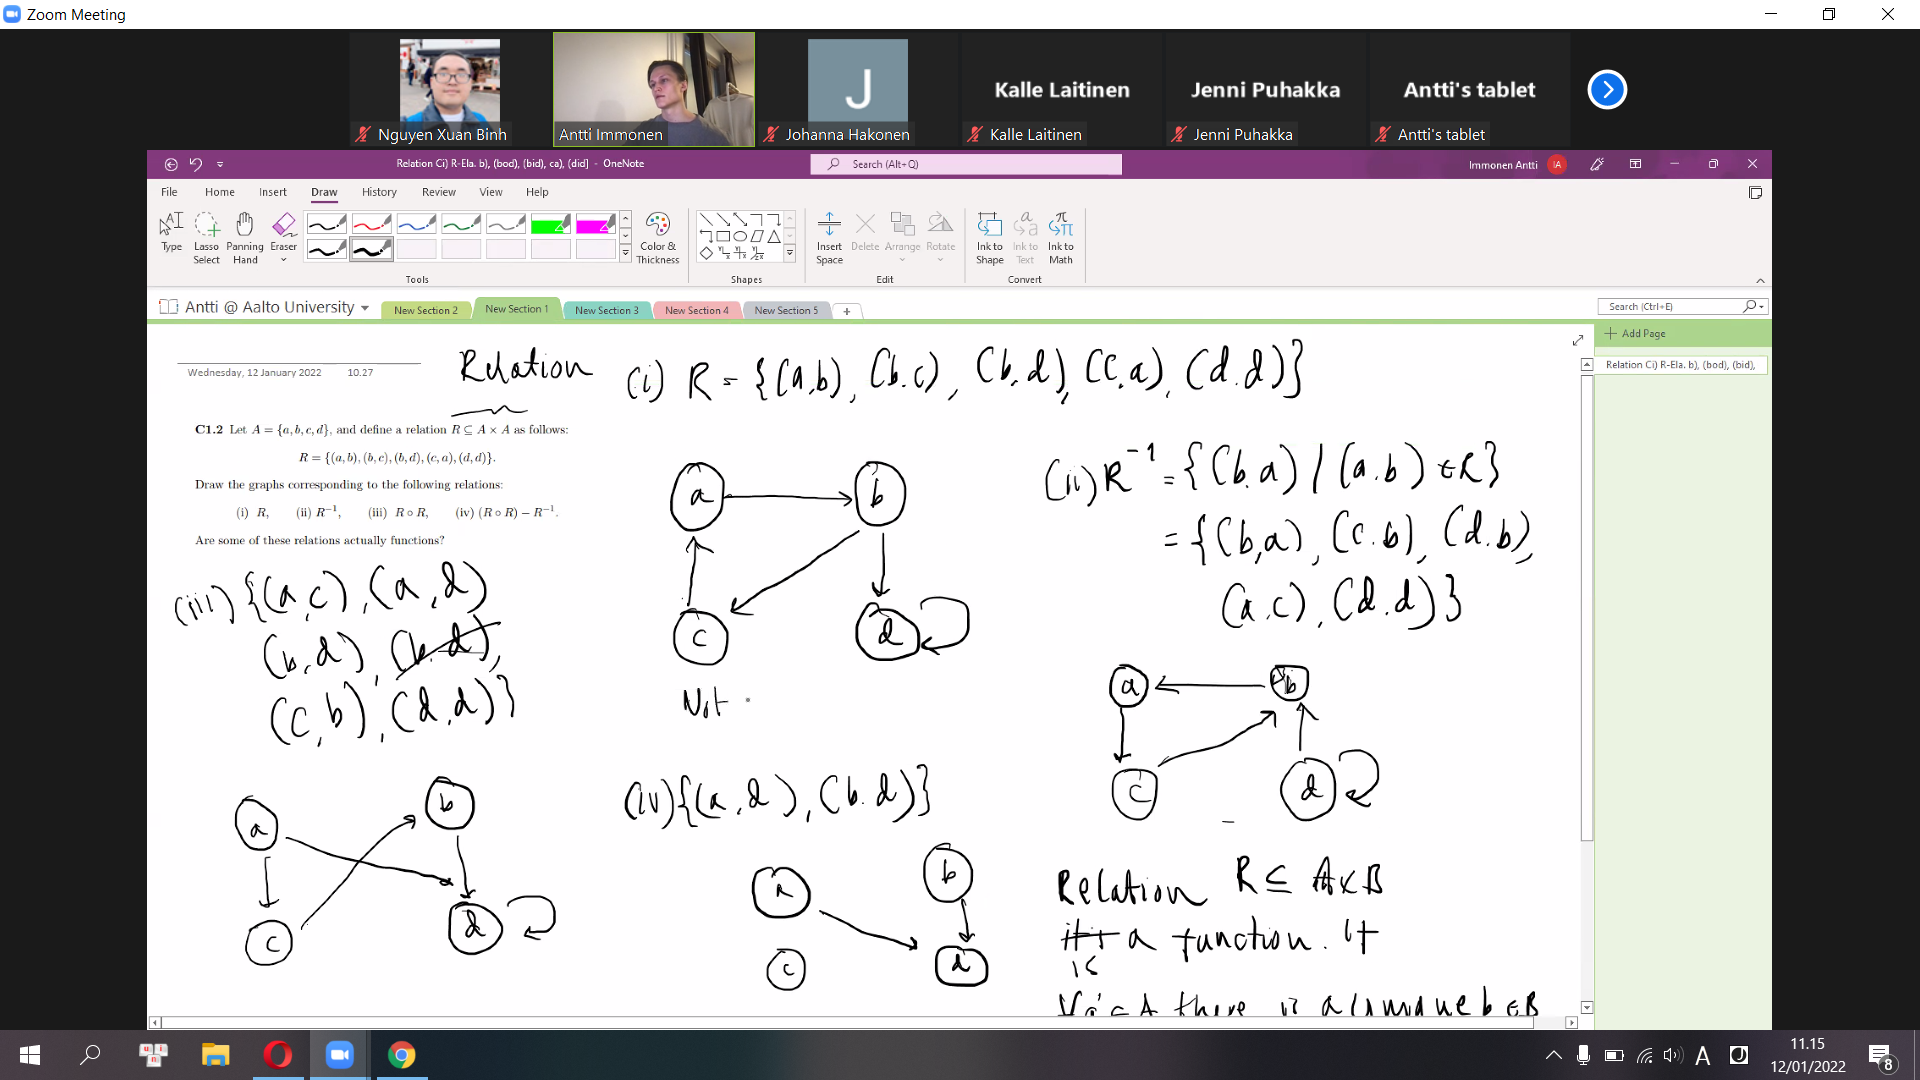 Zoom Meeting
Kalle Laitinen
Jenni Puhakka
Antti's tablet
J
Nguyen Xuan Binh
Antti Immonen
Johanna Hakonen
Kalle Laitinen
Jenni Puhakka
Antti's tablet
Relation Ci) R-Ela. b), (bod), (bid), ca), (did) - OneNote
Search (Alt+Q)
Immonen Antti
IA
File Home Insert Draw History Review View Help
Type
Lasso Select
Panning Hand
Eraser
Color & Thickness
Insert Space
Delete
Arrange
Rotate
Ink to Shape
Ink to Text
Ink to Math
Tools
Shapes
Edit
Convert
Antti @ Aalto University
New Section 2
New Section 1
New Section 3
New Section 4
New Section 5
+
Search (Ctrl+E)
Add Page
Relation Ci) R-Ela. b), (bod), (bid),
Wednesday, 12 January 2022 10.27
Relation
(i) R = {(a,b), (b.c), (b,d), (c.a), (d.d)}
C1.2 Let A = {a, b, c, d}, and define a relation R ⊆ A × A as follows:
R = {(a, b), (b, c), (b, d), (c, a), (d, d)}.
Draw the graphs corresponding to the following relations:
(i) R, (ii) R⁻¹, (iii) R ∘ R, (iv) (R ∘ R) − R⁻¹.
Are some of these relations actually functions?
a b
c d
Not
(ii) R⁻¹ = {(b.a) | (a.b) ∈ R}
= {(b,a), (c.b), (d.b),
(a.c), (d.d)}
a b
c d
(iii) {(a,c), (a,d)
(b,d), (b.d),
(c,b), (d,d)}
a b
c d
(iv) {(a,d), (b.d)}
a b
c d
Relation R ⊆ A×B
is a function. if
∀a ∈ A there is a unique b ∈ B
11.15
12/01/2022
8